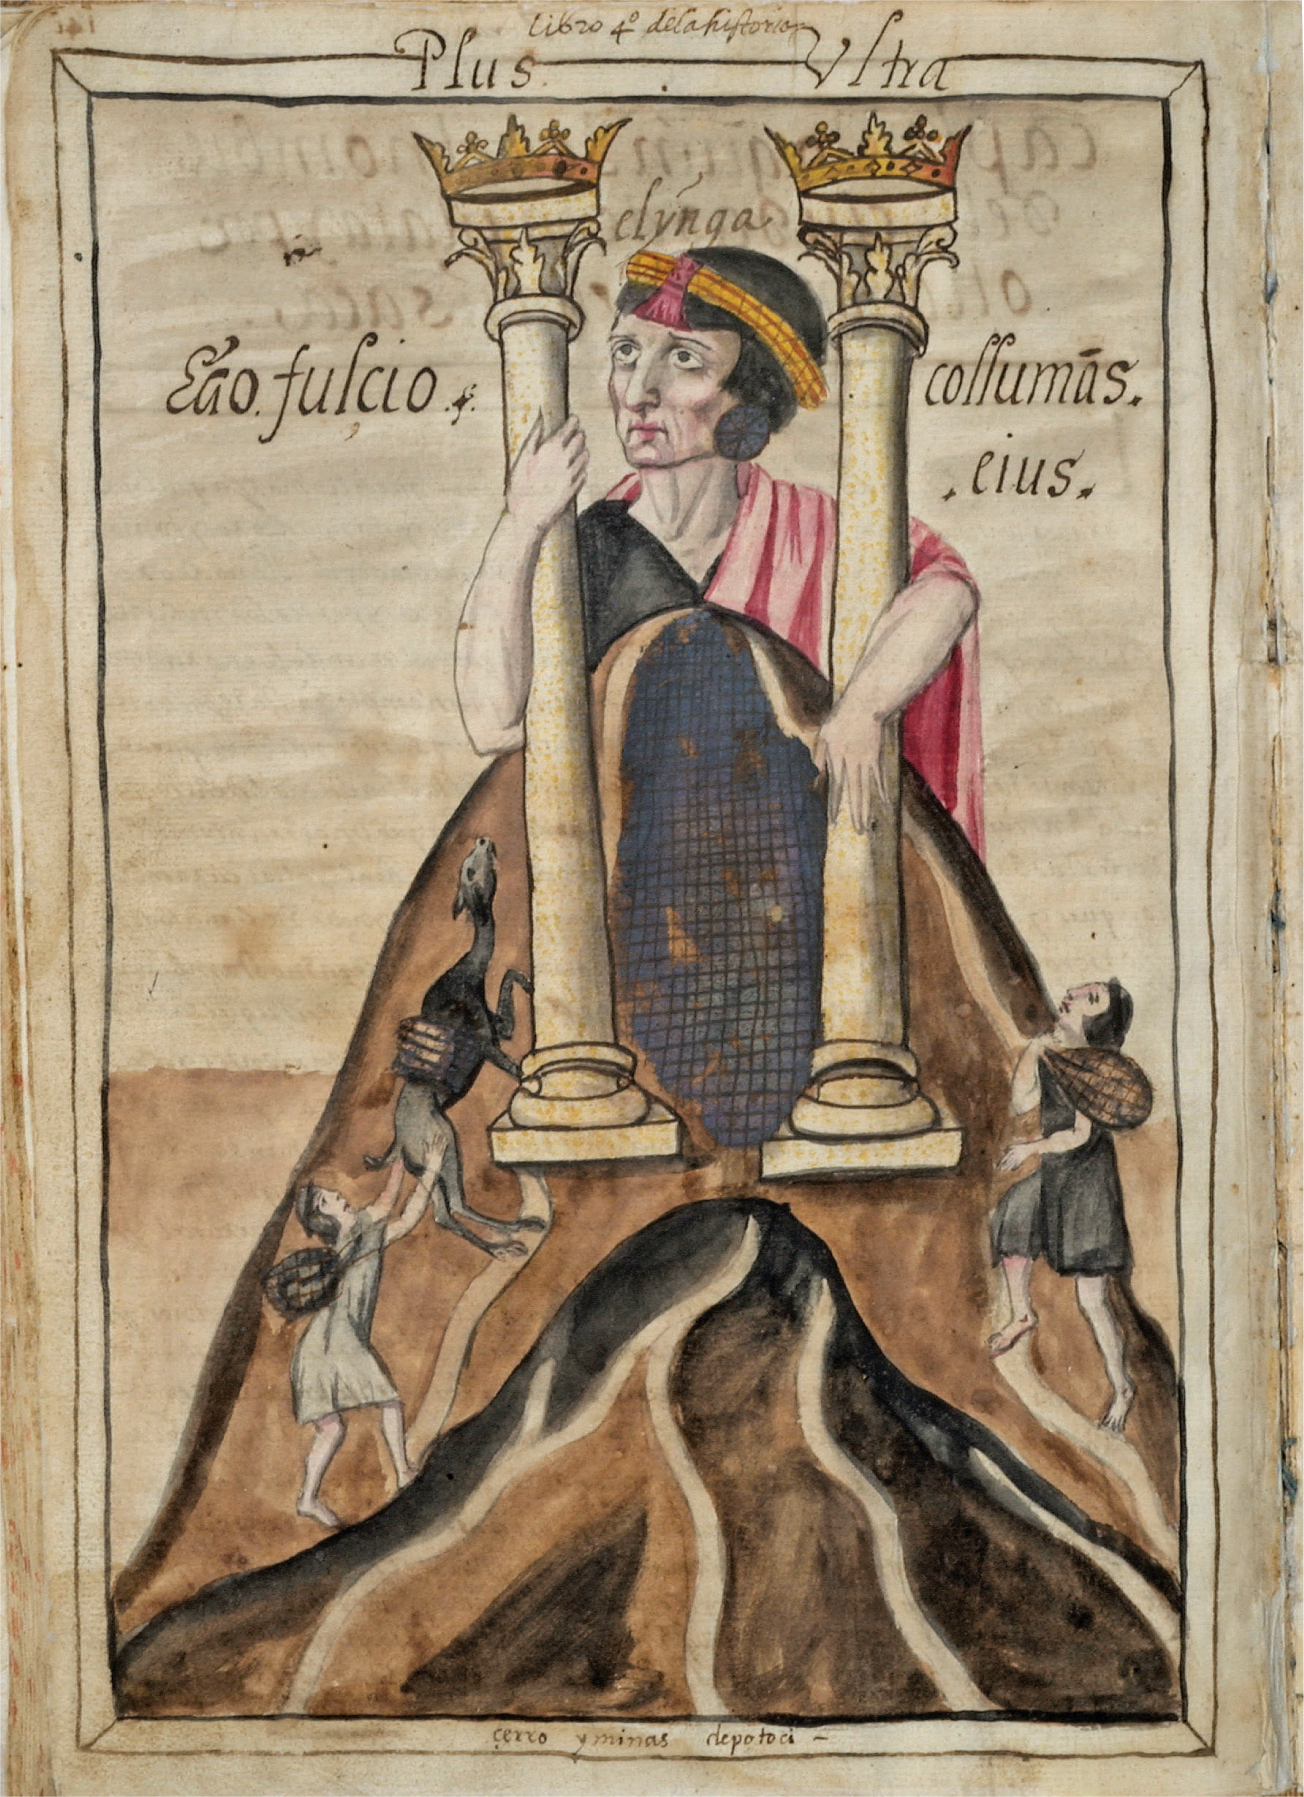 Libro 4º de la historia
Plus Vltra
elynga
Ego. fulcio. collumās.
.eius.
çerro y minas de potoci